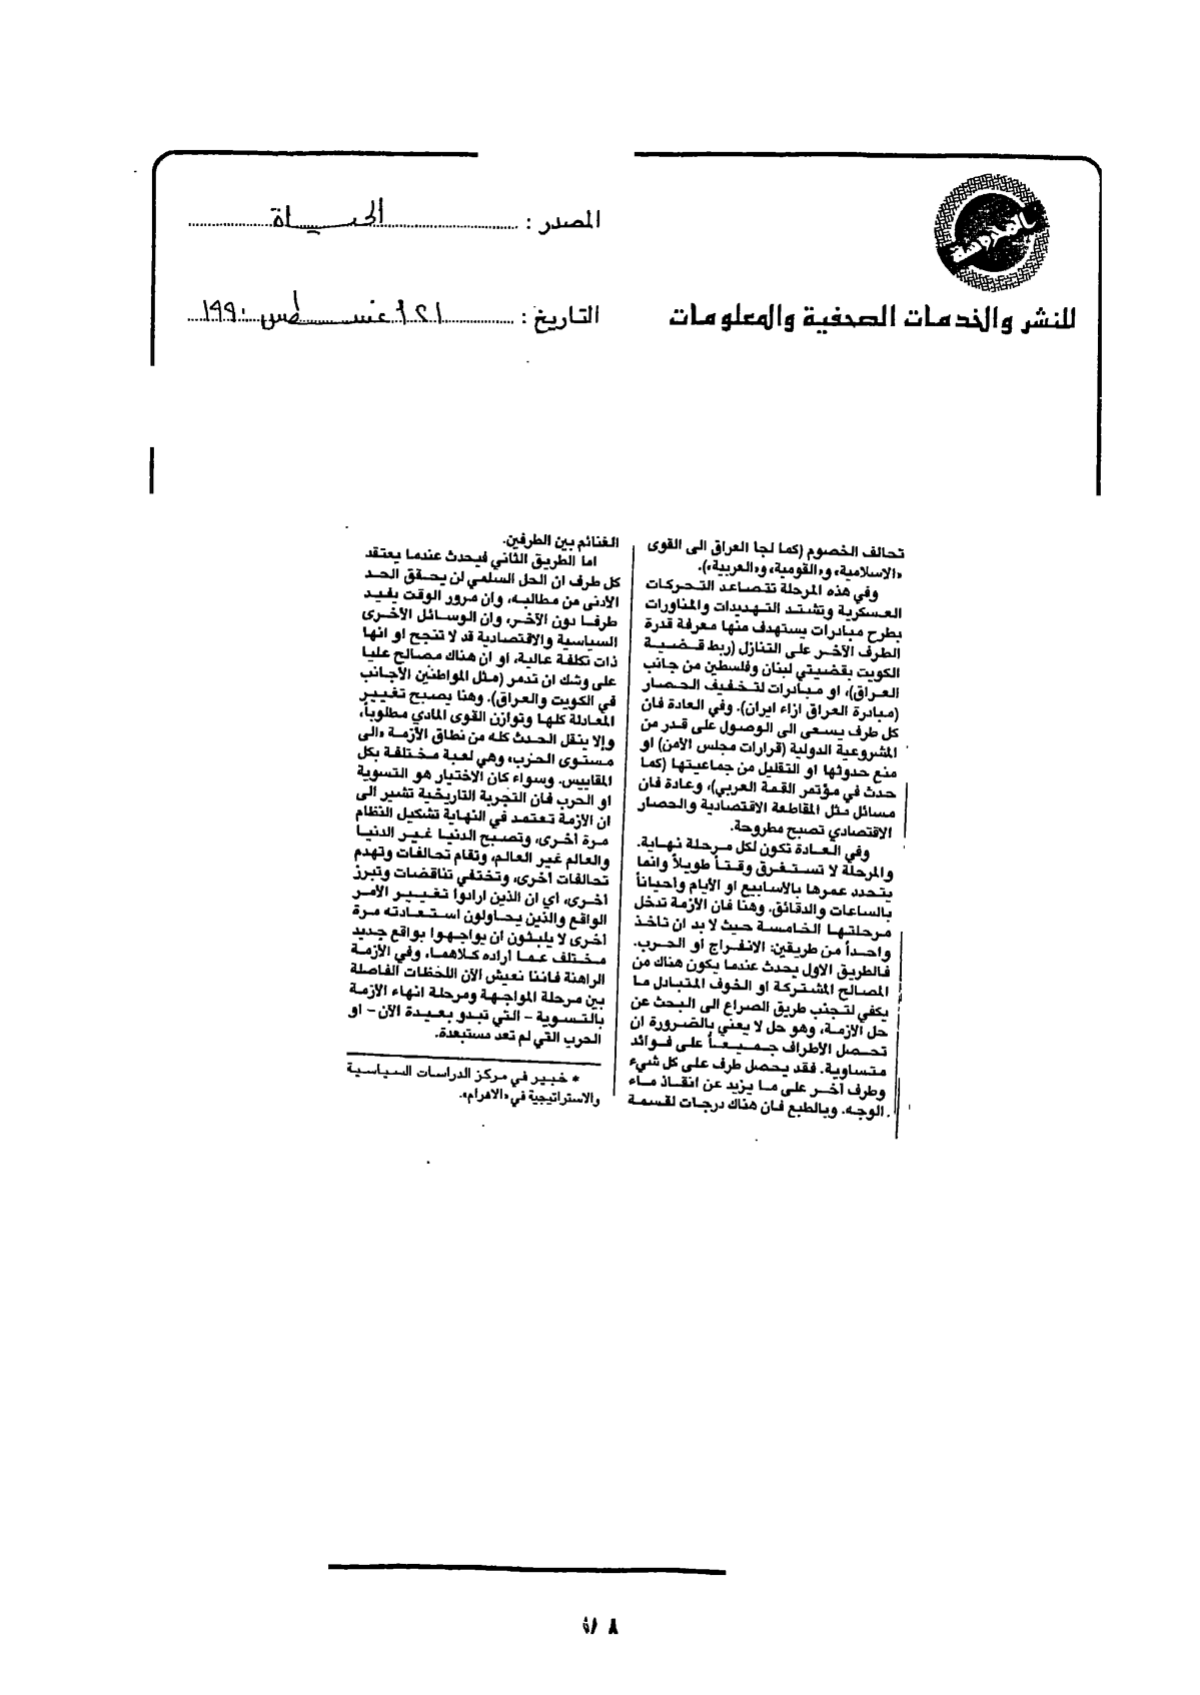 المدوسة
للنشر والخدمات الصحفية والمعلومات
المصدر : الحياة
التاريخ : ٢١ أغسطس ١٩٩٠
تحالف الخصوم (كما لجا العراق الى القوى
«الاسلامية» و«القومية» و«العربية»).
وفي هذه المرحلة تتصاعد التحركات
العسكرية وتشتد التهديدات والمناورات
بطرح مبادرات يستهدف منها معرفة قدرة
الطرف الآخر على التنازل (ربط قضية
الكويت بقضيتي لبنان وفلسطين من جانب
العراق)، او مبادرات لتخفيف الحصار
(مبادرة العراق ازاء ايران). وفي العادة فان
كل طرف يسعى الى الوصول على قدر من
المشروعية الدولية (قرارات مجلس الأمن) او
منع حدوثها او التقليل من جماعيتها (كما
حدث في مؤتمر القمة العربي)، وعادة فان
مسائل مثل المقاطعة الاقتصادية والحصار
الاقتصادي تصبح مطروحة.
وفي العادة تكون لكل مرحلة نهاية.
والمرحلة لا تستغرق وقتاً طويلاً وانما
يتحدد عمرها بالأسابيع او الأيام واحياناً
بالساعات والدقائق. وهنا فان الأزمة تدخل
مرحلتها الخامسة حيث لا بد ان تاخذ
واحداً من طريقين: الانفراج او الحرب.
فالطريق الاول يحدث عندما يكون هناك من
المصالح المشتركة او الخوف المتبادل ما
يكفي لتجنب طريق الصراع الى البحث عن
حل الازمة، وهو حل لا يعني بالضرورة ان
تحصل الأطراف جميعاً على فوائد
متساوية. فقد يحصل طرف على كل شيء
وطرف آخر على ما يزيد عن انقاذ ماء
الوجه. وبالطبع فان هناك درجات لقسمة
الغنائم بين الطرفين.
اما الطريق الثاني فيحدث عندما يعتقد
كل طرف ان الحل السلمي لن يحقق الحد
الأدنى من مطالبه، وان مرور الوقت يفيد
طرفا دون الآخر، وان الوسائل الأخرى
السياسية والاقتصادية قد لا تنجح او انها
ذات تكلفة عالية، او ان هناك مصالح عليا
على وشك ان تدمر (مثل المواطنين الأجانب
في الكويت والعراق). وهنا يصبح تغيير
المعادلة كلها وتوازن القوى المادي مطلوبا،
وإلا ينقل الحدث كله من نطاق الأزمة «الى
مستوى الحزب» وهي لعبة مختلفة بكل
المقاييس. وسواء كان الاختيار هو التسوية
او الحرب فان التجربة التاريخية تشير الى
ان الأزمة تعتمد في النهاية تشكيل النظام
مرة أخرى، وتصبح الدنيا غير الدنيا
والعالم غير العالم، وتقام تحالفات وتهدم
تحالفات أخرى، وتختفي تناقضات وتبرز
أخرى، أي ان الذين ارادوا تغيير الأمر
الواقع والذين يحاولون استعادته مرة
اخرى لا يلبثون ان يواجهوا بواقع جديد
مختلف عما اراده كلاهما، وفي الأزمة
الراهنة فاننا نعيش الآن اللحظات الفاصلة
بين مرحلة المواجهة ومرحلة انهاء الأزمة
بالتسوية – التي تبدو بعيدة الآن – او
الحرب التي لم تعد مستبعدة.
* خبير في مركز الدراسات السياسية
والاستراتيجية في «الاهرام».